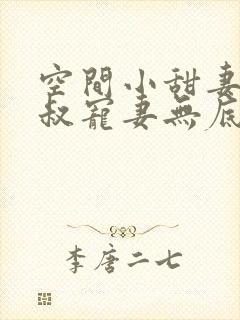 空間小甜妻
叔寵妻無底
李唐二七